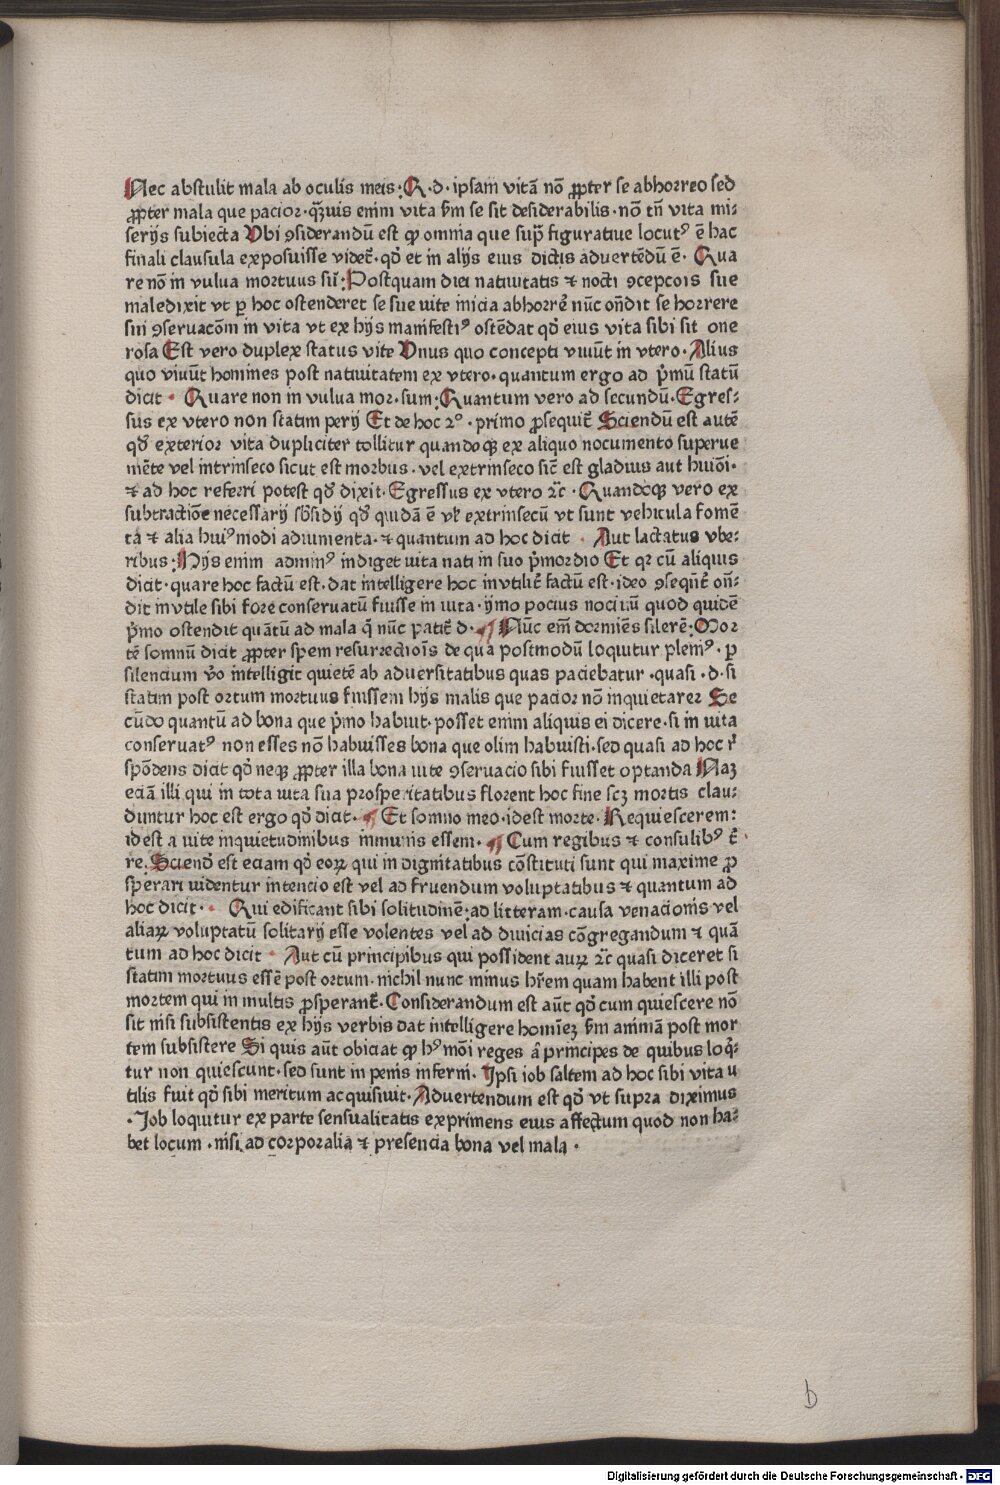 Nec abstulit mala ab oculis meis: Q·d· ipsam vitā nō ꝓpter se abhorreo sed
ꝓpter mala que pacior· Q̄uis enim vita s̄m se sit desiderabilis· nō tn̄ vita mi⸗
serijs subiecta Vbi ꝯsiderandū est ꝙ omnia que sup̄ figuratiue locutꝰ ē hac
finali clausula exposuisse videt̄· qd̓ et in alijs eius dictis aduertēdū ē· Qua
re nō in vulua mortuus sū: Postquam diei natiuitatis ⁊ nocti ꝯcepcōis sue
maledixit vt p hoc ostenderet se sue uite inicia abhorrē nūc on̄dit se horrere
sui ꝯseruacōm in vita vt ex hijs manifestiꝰ ostēdat qd̓ eius vita sibi sit one
rosa Est vero duplex status vite Vnus quo concepti viuūt in vtero· Alius
quo viuūt homines post natiuitatem ex vtero· quantum ergo ad p̓mū statū
dicit · Quare non in vulua mor· sum: Quantum vero ad secundū· Egres⸗
sus ex vtero non statim perij Et de hoc 2º· primo ꝓsequit̄ Sciendū est autē
qd̓ exterior vita dupliciter tollitur quandoqꝫ ex aliquo nocumento superue
niēte vel intrinseco sicut est morbus· vel extrinseco sic̄ est gladius aut hiuiōi·
⁊ ad hoc referri potest qd̓ dixit· Egressus ex vtero ⁊c̄· Quandoqꝫ vero ex
subtractiōe necessarij sb̓sidij qd̓ quidā ē vl̓ extrinsecū vt sunt vehicula fomē
ta ⁊ alia huiꝰmodi adiumenta· ⁊ quantum ad hoc dicit · Aut lactatus vbe⸗
ribus: Hijs enim adminꝰ indiget uita nati in suo p̓mordio Et qꝛ cū aliquis
dicit· quare hoc factū est· dat intelligere hoc inutilit̄ factū est· ideo ꝯseqn̄t on̄⸗
dit inutile sibi fore conseruatū fuisse in uita· ymo pocius nociuū quod quidē
p̓mo ostendit quātū ad mala q̄ nūc patit̄ d· ¶ Nūc em̄ dormiēs silerē: Mor
tē somnū dicit ꝓpter spem resurrectiōis de qua postmodū loquitur plemꝰ· p
silencium v̓o intelligit quietē ab aduersitatibus quas paciebatur· quasi· d· si
statim post ortum mortuus fuissem hijs malis que pacior nō inquietarer Se
cūdo quantū ad bona que p̓mo habuit· posset enim aliquis ei dicere· si in uita
conseruatꝰ non esses nō habuisses bona que olim habuisti· sed quasi ad hoc r̄
spōdens dicit qd̓ neqꝫ ꝓpter illa bona uite ꝯseruacio sibi fuisset optanda Naꝫ
eciā illi qui in tota uita sua prosperitatibus florent hoc fine scꝫ mortis clau⸗
duntur hoc est ergo qd̓ dicit· ¶ Et somno meo· idest morte· Requiescerem:
idest a uite inquietudinibus inmunis essem· ¶ Cum regibus ⁊ consulibꝰ t̄
re· Sciend̓ est eciam qd̓ eoꝝ qui in dignitatibus cōstituti sunt qui maxime ꝓ
sperari uidentur intencio est vel ad fruendum voluptatibus ⁊ quantum ad
hoc dicit· · Qui edificant sibi solitudinē: ad litteram· causa venacionis vel
aliaꝝ voluptatū solitarij esse volentes vel ad diuicias cōgregandum ⁊ quā
tum ad hoc dicit · Aut cū principibus qui possident auꝝ ⁊c̄ quasi diceret si
statim mortuus essē post ortum· nichil nunc minus hr̄em quam habent illi post
mortem qui in multis ꝓsperant̄· Considerandum est aūt qd̓ cum quiescere nō
sit nisi subsistentis ex hijs verbis dat intelligere homieꝫ s̄m animā post mor
tem subsistere Si quis aūt obiciat ꝙ hꝰmōi reges ā principes de quibus loq̓⸗
tur non quiescunt· sed sunt in penis inferni· Ipsi iob saltem ad hoc sibi vita u
tilis fuit qd̓ sibi meritum acquisiuit· Aduertendum est qd̓ vt supra diximus
· Iob loquitur ex parte sensualitatis exprimens eius affectum quod non ha⸗
bet locum· nisi ad corporalia ⁊ presencia bona vel mala·
b
Digitalisierung gefördert durch die Deutsche Forschungsgemeinschaft - DFG